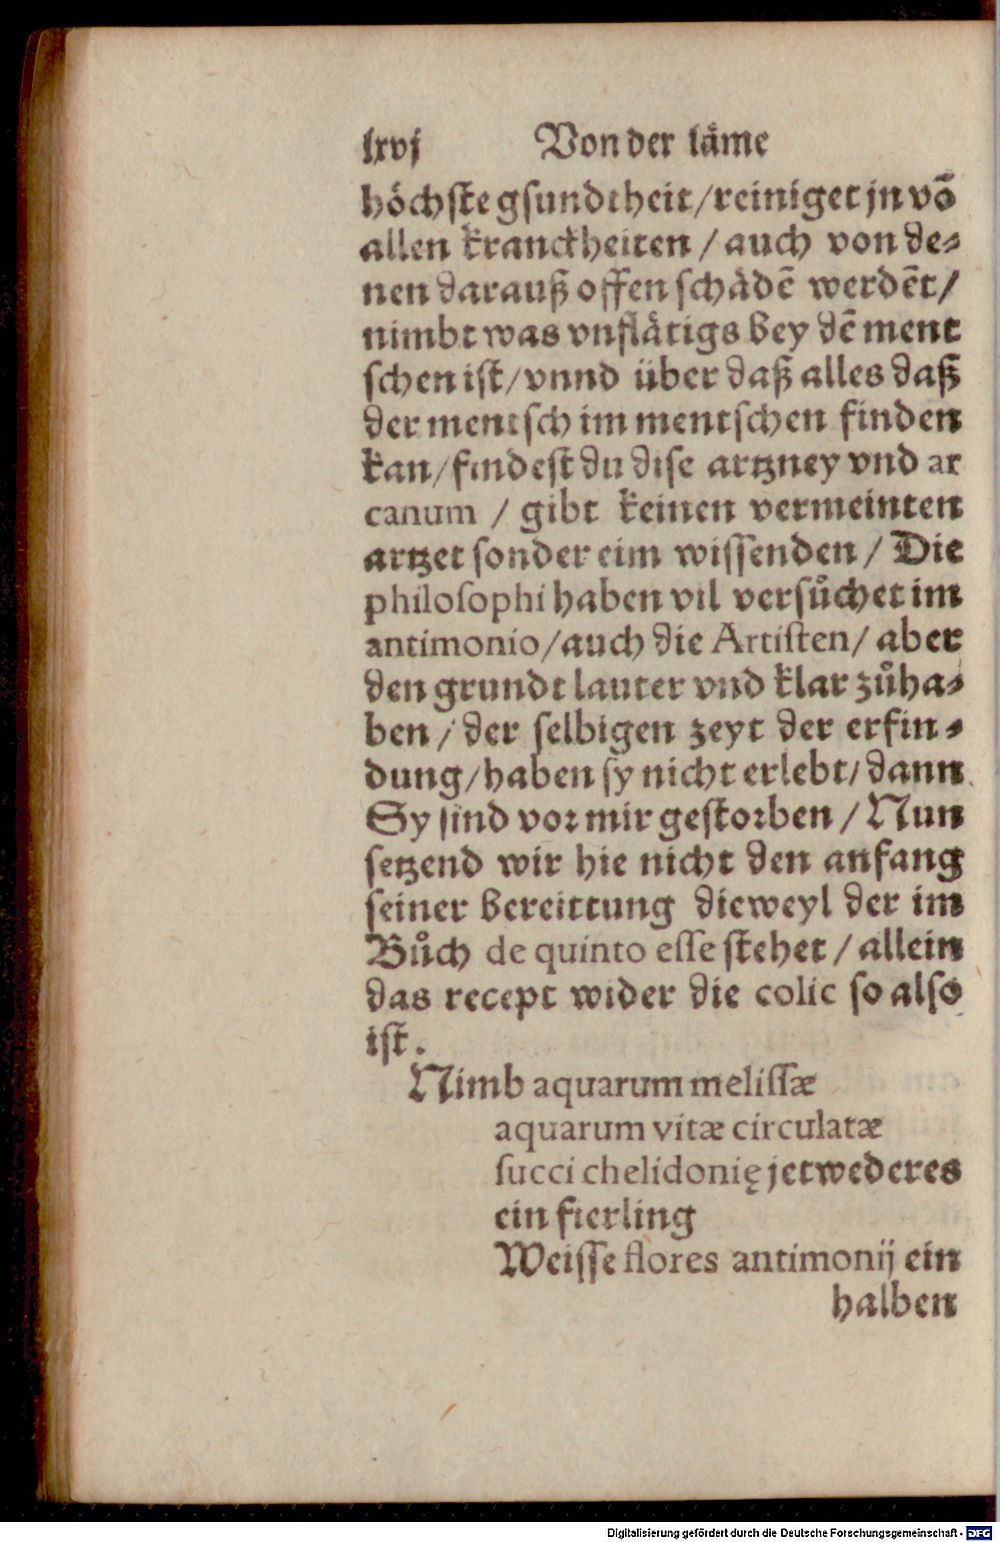 lxvj Von der läme
höchste gsundtheit/reiniget jn vō
allen kranckheiten / auch von de⸗
nen darauß offen schådē werdēt/
nimbt was vnflätigs bey dē ment
schen ist/vnnd über daß alles daß
der mentsch im mentschen finden
kan/findest du dise artzney vnd ar
canum / gibt keinen vermeinten
artzet sonder eim wissenden / Die
philosophi haben vil versůchet im
antimonio/auch die Artisten/ aber
den grundt lauter vnd klar zůha⸗
ben / der selbigen zeyt der erfin⸗
dung/haben sy nicht erlebt/dann
Sy sind vor mir gestorben / Nun
setzend wir hie nicht den anfang
seiner bereittung dieweyl der im
Bůch de quinto esse stehet / allein
das recept wider die colic so also
ist.
Nimb aquarum melissæ
aquarum vitæ circulatæ
succi chelidonię jetwederes
ein fierling
Weisse flores antimonij ein
halben
Digitalisierung gefördert durch die Deutsche Forschungsgemeinschaft - DFG